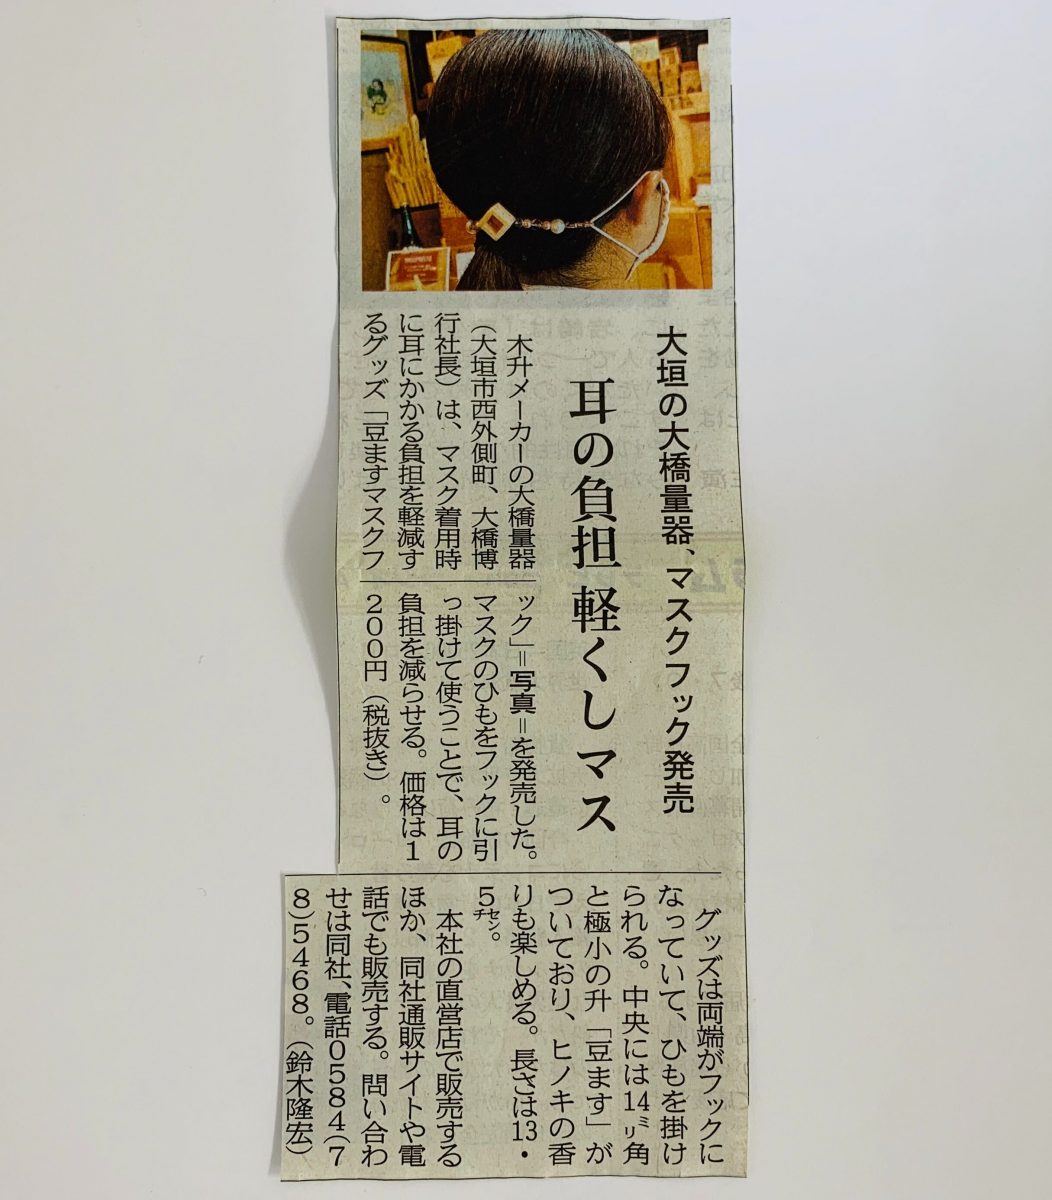 大垣の大橋量器、マスクフック発売
耳の負担 軽くしマス
木升メーカーの大橋量器
(大垣市西外側町、大橋博
行社長)は、マスク着用時
に耳にかかる負担を軽減す
るグッズ「豆ますマスクフ
ック」=写真=を発売した。
マスクのひもをフックに引
っ掛けて使うことで、耳の
負担を減らせる。価格は1
200円(税抜き)。
グッズは両端がフックに
なっていて、ひもを掛け
られる。中央には14㍉角
と極小の升「豆ます」が
ついており、ヒノキの香
りも楽しめる。長さは13・
5㌢。
本社の直営店で販売する
ほか、同社通販サイトや電
話でも販売する。問い合わ
せは同社、電話0584(7
8)5468。(鈴木隆宏)